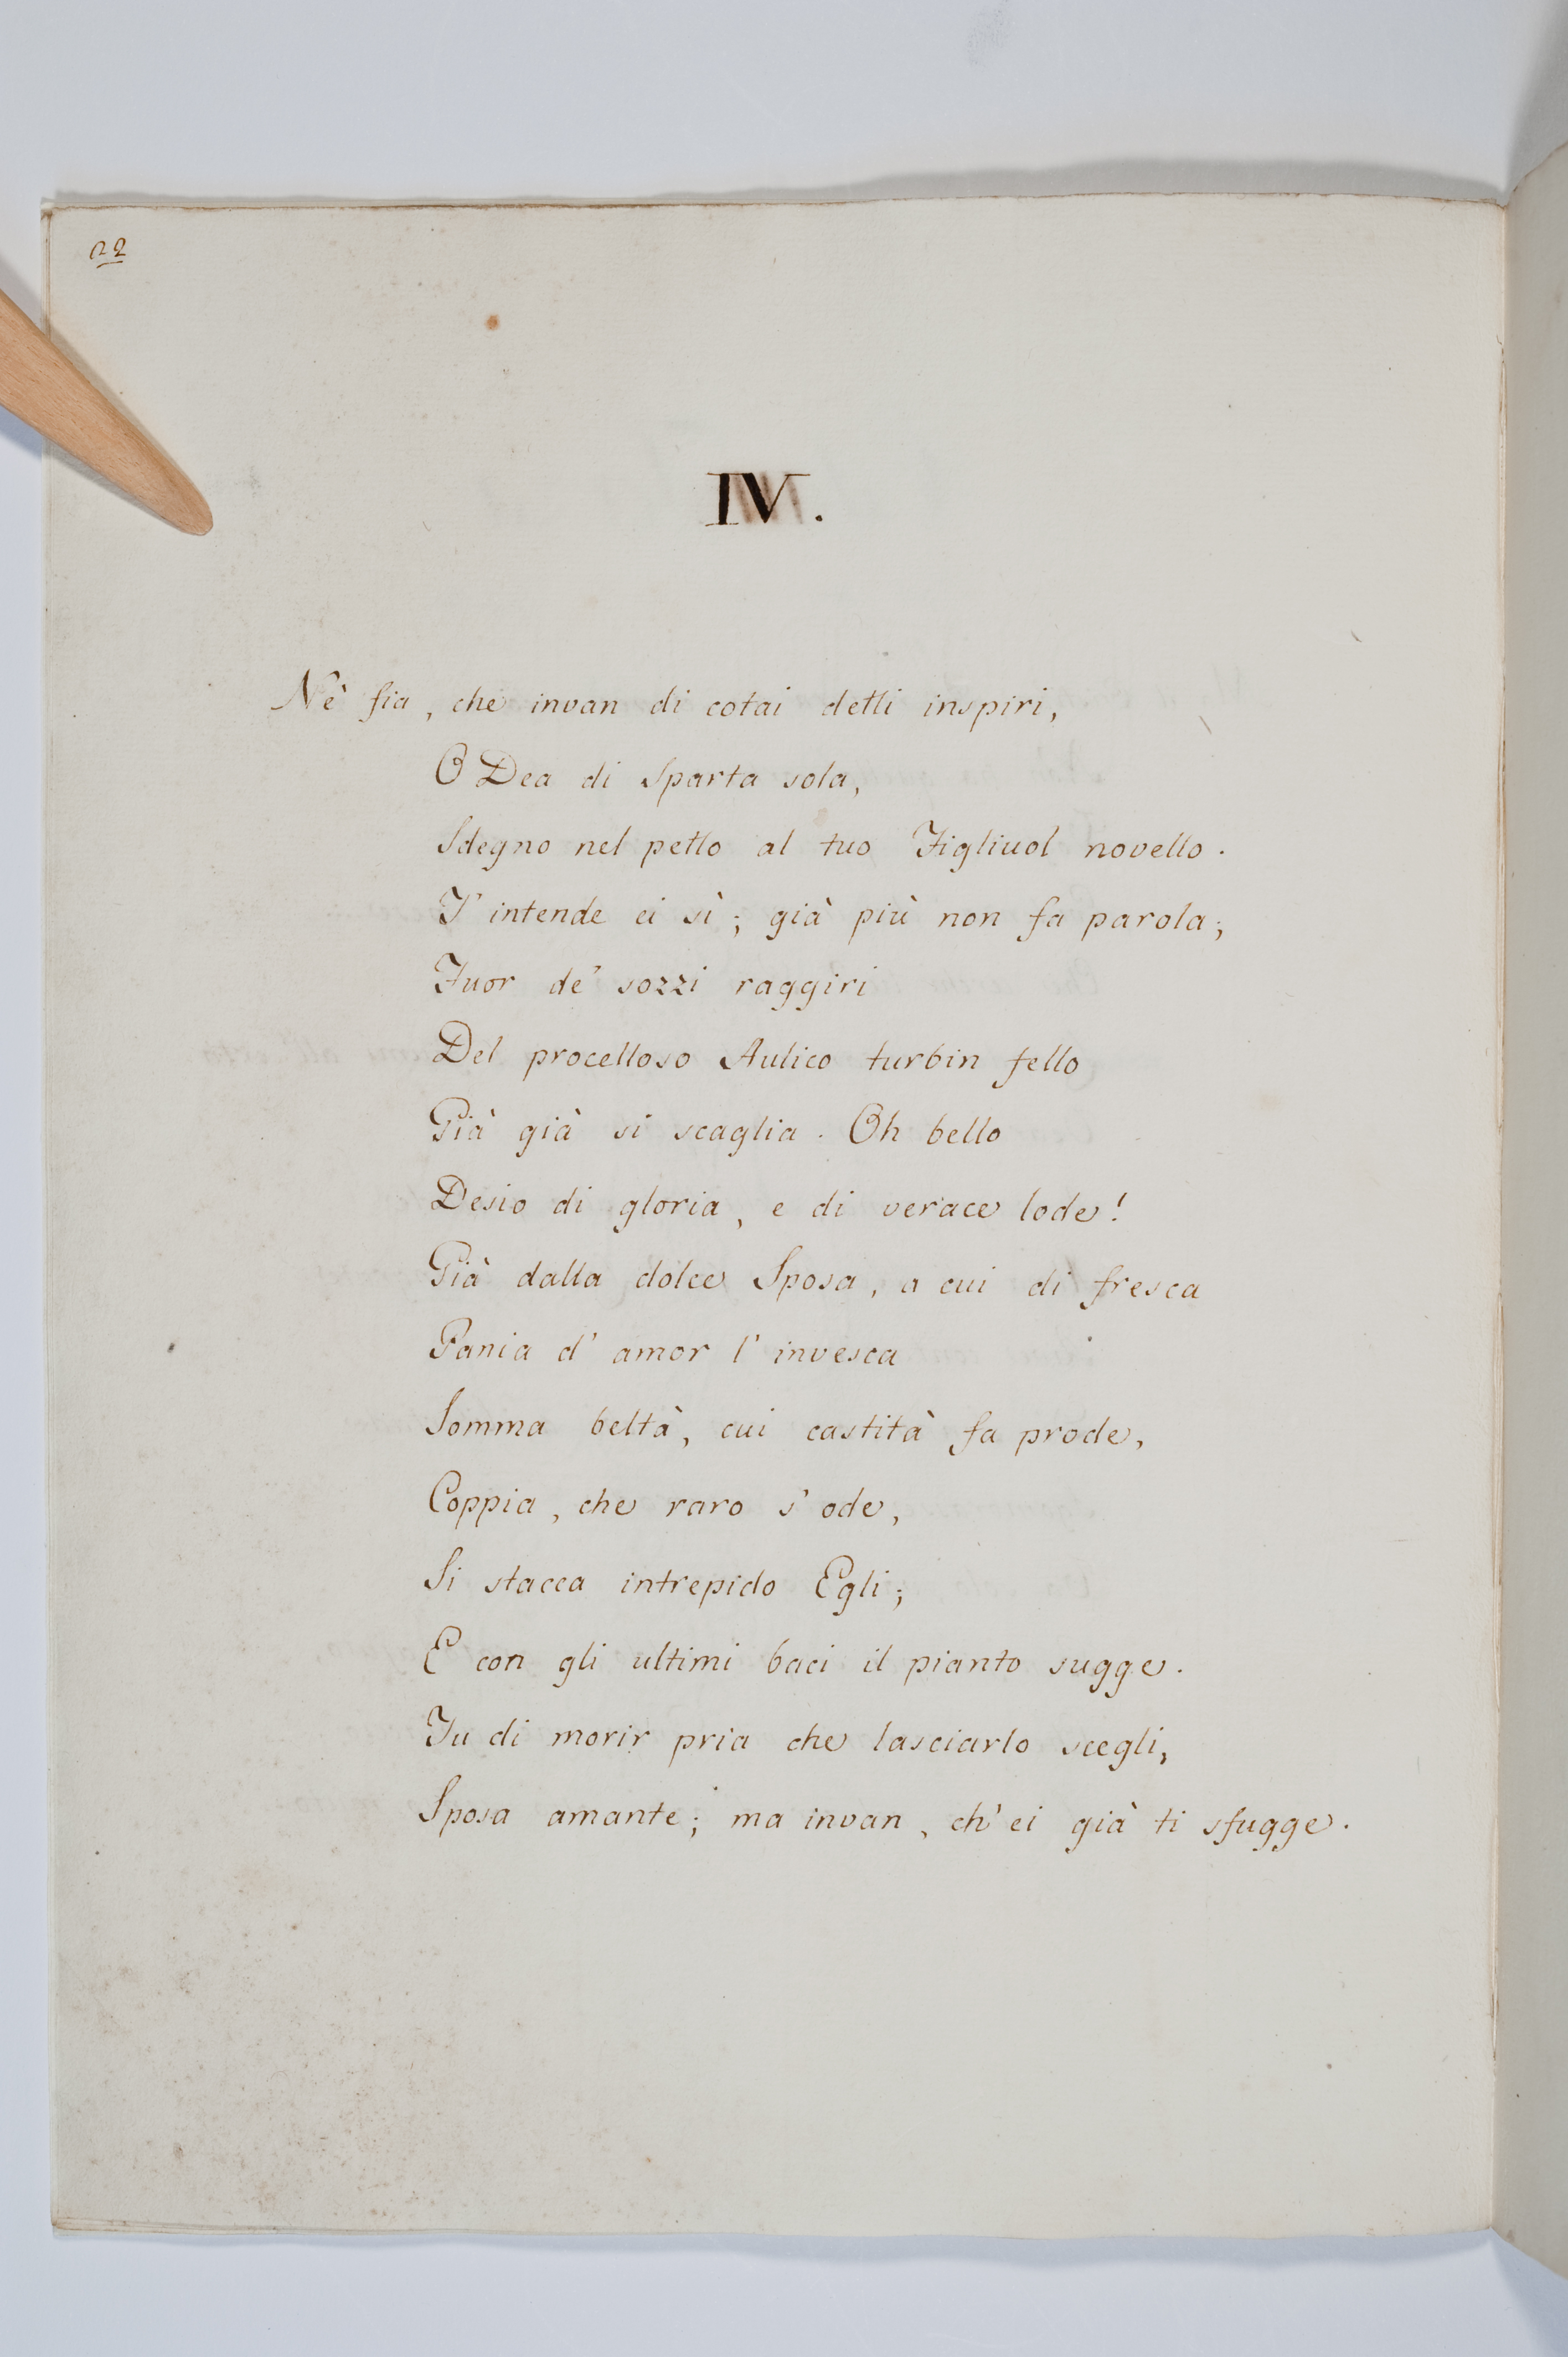 22
IV.
Nè fia, che invan di cotai detti inspiri,
O Dea di Sparta sola,
Sdegno nel petto al tuo Figliuol novello.
T' intende ei sì; già più non fa parola;
Fuor de' sozzi raggiri
Del procelloso Aulico turbin fello
Già già si scaglia. Oh bello
Desio di gloria, e di verace lode!
Già dalla dolce Sposa, a cui di fresca
Pania d' amor l' invesca
Somma beltà, cui castità fa prode,
Coppia, che raro s' ode,
Si stacca intrepido Egli;
E con gli ultimi baci il pianto sugge.
Tu di morir pria che lasciarlo scegli,
Sposa amante; ma invan, ch' ei già ti sfugge.